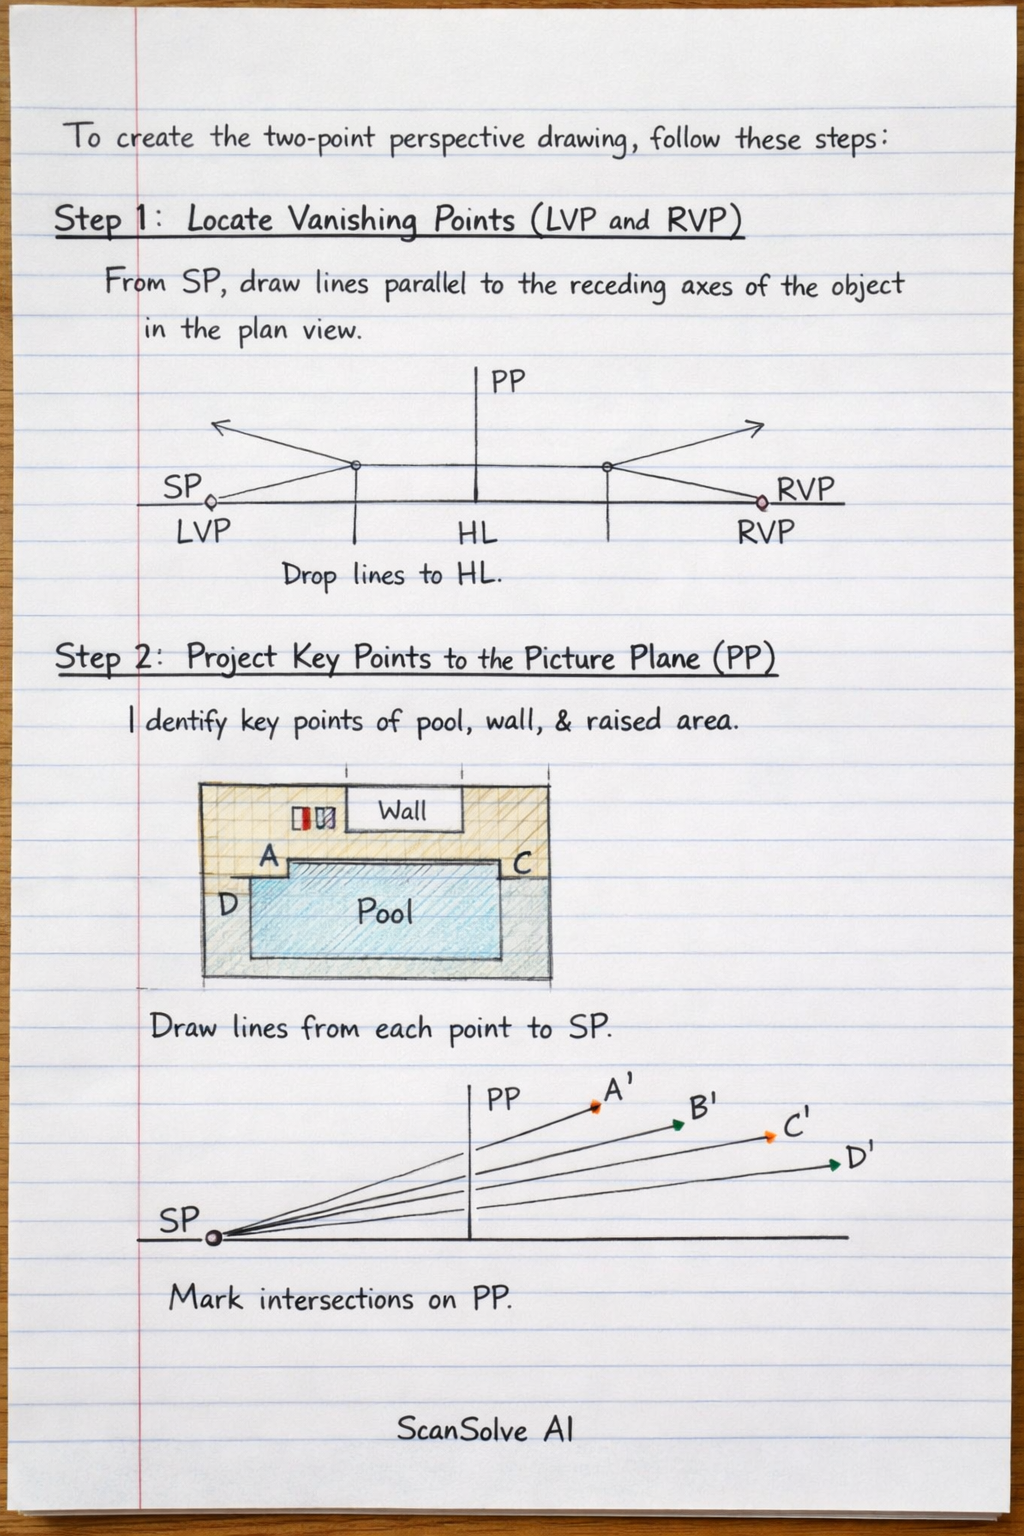 To create the two-point perspective drawing, follow these steps:
Step 1: Locate Vanishing Points (LVP and RVP)
From SP, draw lines parallel to the receding axes of the object
in the plan view.
PP
SP
RVP
LVP
HL
RVP
Drop lines to HL.
Step 2: Project Key Points to the Picture Plane (PP)
Identify key points of pool, wall, & raised area.
Wall
A
C
D
Pool
Draw lines from each point to SP.
PP
A'
B'
C'
D'
SP
Mark intersections on PP.
ScanSolve AI